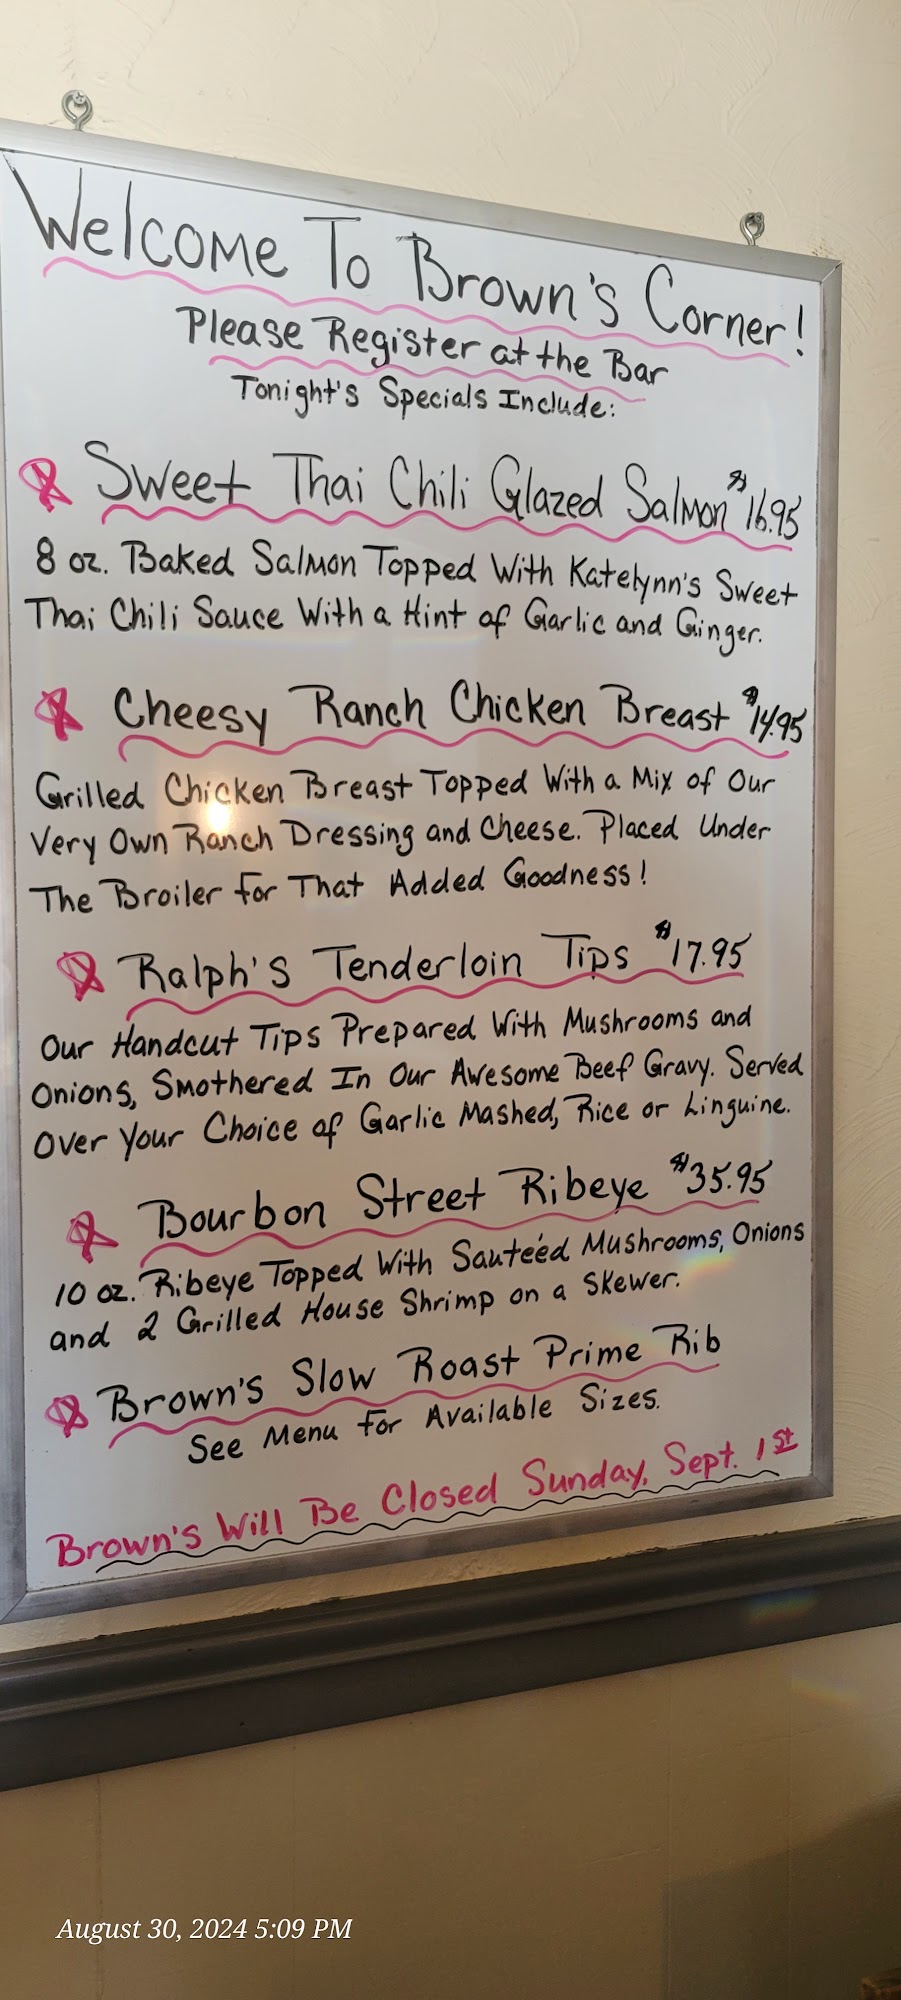 Welcome To Brown's Corner!
Please Register at the Bar
Tonight's Specials Include:
Sweet Thai Chili Glazed Salmon $16.95
8 oz. Baked Salmon Topped With Katelynn's Sweet
Thai Chili Sauce With a Hint of Garlic and Ginger.
Cheesy Ranch Chicken Breast $14.95
Grilled Chicken Breast Topped With a Mix of Our
Very Own Ranch Dressing and Cheese. Placed Under
The Broiler for That Added Goodness!
Ralph's Tenderloin Tips $17.95
Our Handcut Tips Prepared With Mushrooms and
Onions, Smothered In Our Awesome Beef Gravy. Served
Over Your Choice of Garlic Mashed, Rice or Linguine.
Bourbon Street Ribeye $35.95
10 oz. Ribeye Topped With Sauteéd Mushrooms, Onions
and 2 Grilled House Shrimp on a Skewer.
Brown's Slow Roast Prime Rib
See Menu for Available Sizes.
Brown's Will Be Closed Sunday, Sept. 1st
August 30, 2024 5:09 PM